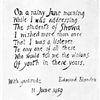 On a rainy June morning
While I was addressing
The students of
I wished more than once
That I was a listener
To any one of all these
Who would tell me the visions
Of youth in these years.
With gratitude,
11 June 1959